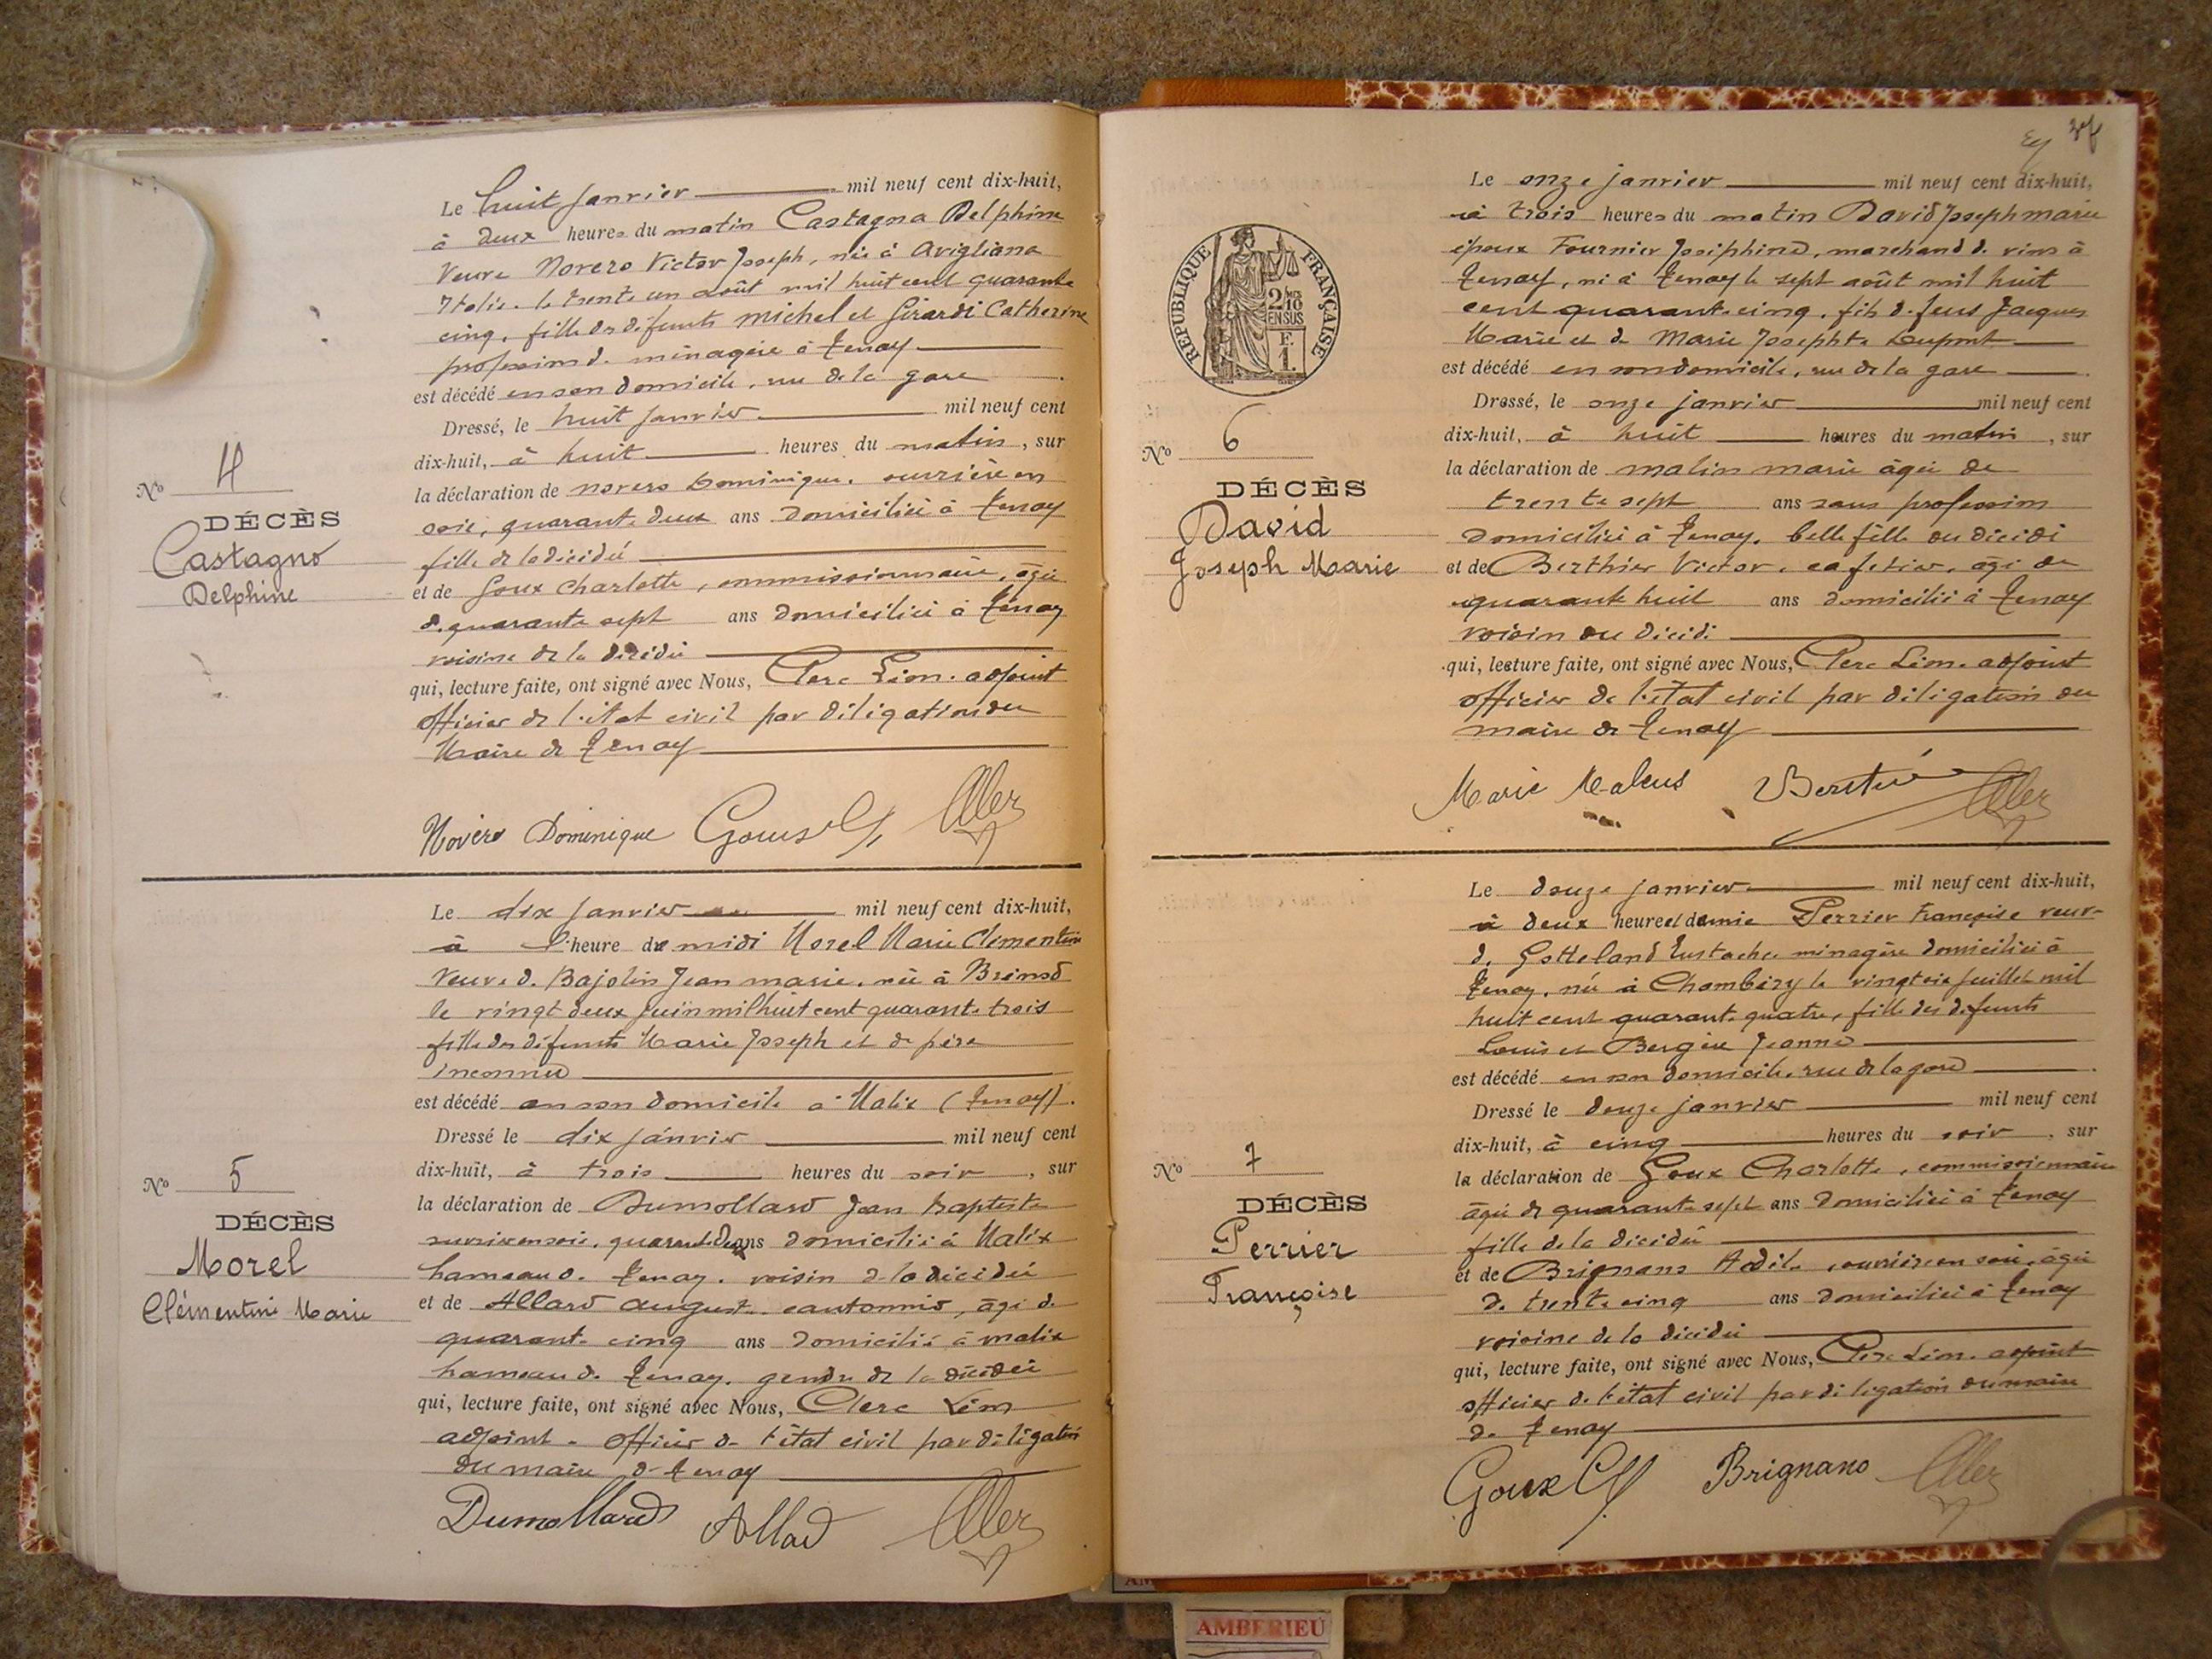 Le huit janvier mil neuf cent dix-huit,
à deux heures du matin Castagna Delphine
veuve Norero Victor Joseph, née à Avigliana
Italie. le trente un août mil huit cent quarante
cinq, fille des défunts Michel et Girardi Catherine
profession de ménagère à Tenay
est décédé en son domicile, rue de la gare
Dressé, le huit janvier mil neuf cent
dix-huit, à huit heures du matin, sur
la déclaration de Norero Dominique, ouvrière en
soie, quarante deux ans domiciliée à Tenay
fille de la décédée
et de Goux Charlotte, commissionnaire, âgée
de quarante sept ans domiciliée à Tenay
voisine de la décédée
qui, lecture faite, ont signé avec Nous, Clerc Léon. adjoint
officier de l'état civil par délégation du
Maire de Tenay
Novero Dominique Goux Ch Clerc
No 4
DÉCÈS
Castagno
Delphine
Le dix janvier mil neuf cent dix-huit,
à l'heure de midi Morel Marie Clémentine
veuve d. Bajolin Jean marie, née à Brénod
le vingt deux juin mil huit cent quarante trois
fille des défunts Marie Joseph et de père
inconnu
est décédé en son domicile à Malix (Tenay).
Dressé le dix janvier mil neuf cent
dix-huit, à trois heures du soir, sur
la déclaration de Dumollard Jean Baptiste
ouvrier en soie, quarante deux ans domicilié à Malix
hameau de Tenay. voisin de la décédée
et de Allard Auguste cantonnier, âgé de
quarante cinq ans domicilié à Malix
hameau de Tenay. gendre de la décédée
qui, lecture faite, ont signé avec Nous, Clerc Léon
adjoint. officier de l'état civil par délégation
du maire de Tenay
Dumollard Allard Clerc
No 5
DÉCÈS
Morel
Clémentine Marie
27
RÉPUBLIQUE FRANÇAISE
2/10
EN SUS
F.
1.
Le onze janvier mil neuf cent dix-huit,
à trois heures du matin David Joseph marie
époux Fournier Joséphine, marchand de vins à
Tenay, né à Tenay le sept août mil huit
cent quarante cinq, fils de feus Jacques
Marie et de Marie Josephte Dupont
est décédé en son domicile, rue de la gare
Dressé, le onze janvier mil neuf cent
dix-huit, à huit heures du matin, sur
la déclaration de Malin marie âgée de
trente sept ans sans profession
domiciliée à Tenay. belle fille du décédé
et de Berthier Victor, cafetier, âgé de
quarante huit ans domicilié à Tenay
voisin du décédé
qui, lecture faite, ont signé avec Nous, Clerc Léon. adjoint
officier de l'état civil par délégation du
maire de Tenay
Marie Clerc
No 6
DÉCÈS
David
Joseph Marie
Le douze janvier mil neuf cent dix-huit,
à deux heures et demie Perrier Françoise veuve
d. Gotteland Eustache ménagère domiciliée à
Tenay, née à Chambéry le vingt six juillet mil
huit cent quarante quatre, fille des défunts
Louis et Bergère Jeanne
est décédé en son domicile, rue de la gare
Dressé le douze janvier mil neuf cent
dix-huit, à cinq heures du soir, sur
la déclaration de Goux Charlotte, commissionnaire
âgée de quarante sept ans domiciliée à Tenay
fille de la décédée
et de Brignano Adèle, ouvrière en soie, âgée
de trente cinq ans domiciliée à Tenay
voisine de la décédée
qui, lecture faite, ont signé avec Nous, Clerc Léon. adjoint
officier de l'état civil par délégation du maire
de Tenay
Goux Ch Brignano Clerc
No 7
DÉCÈS
Perrier
Françoise
AMBERIEU